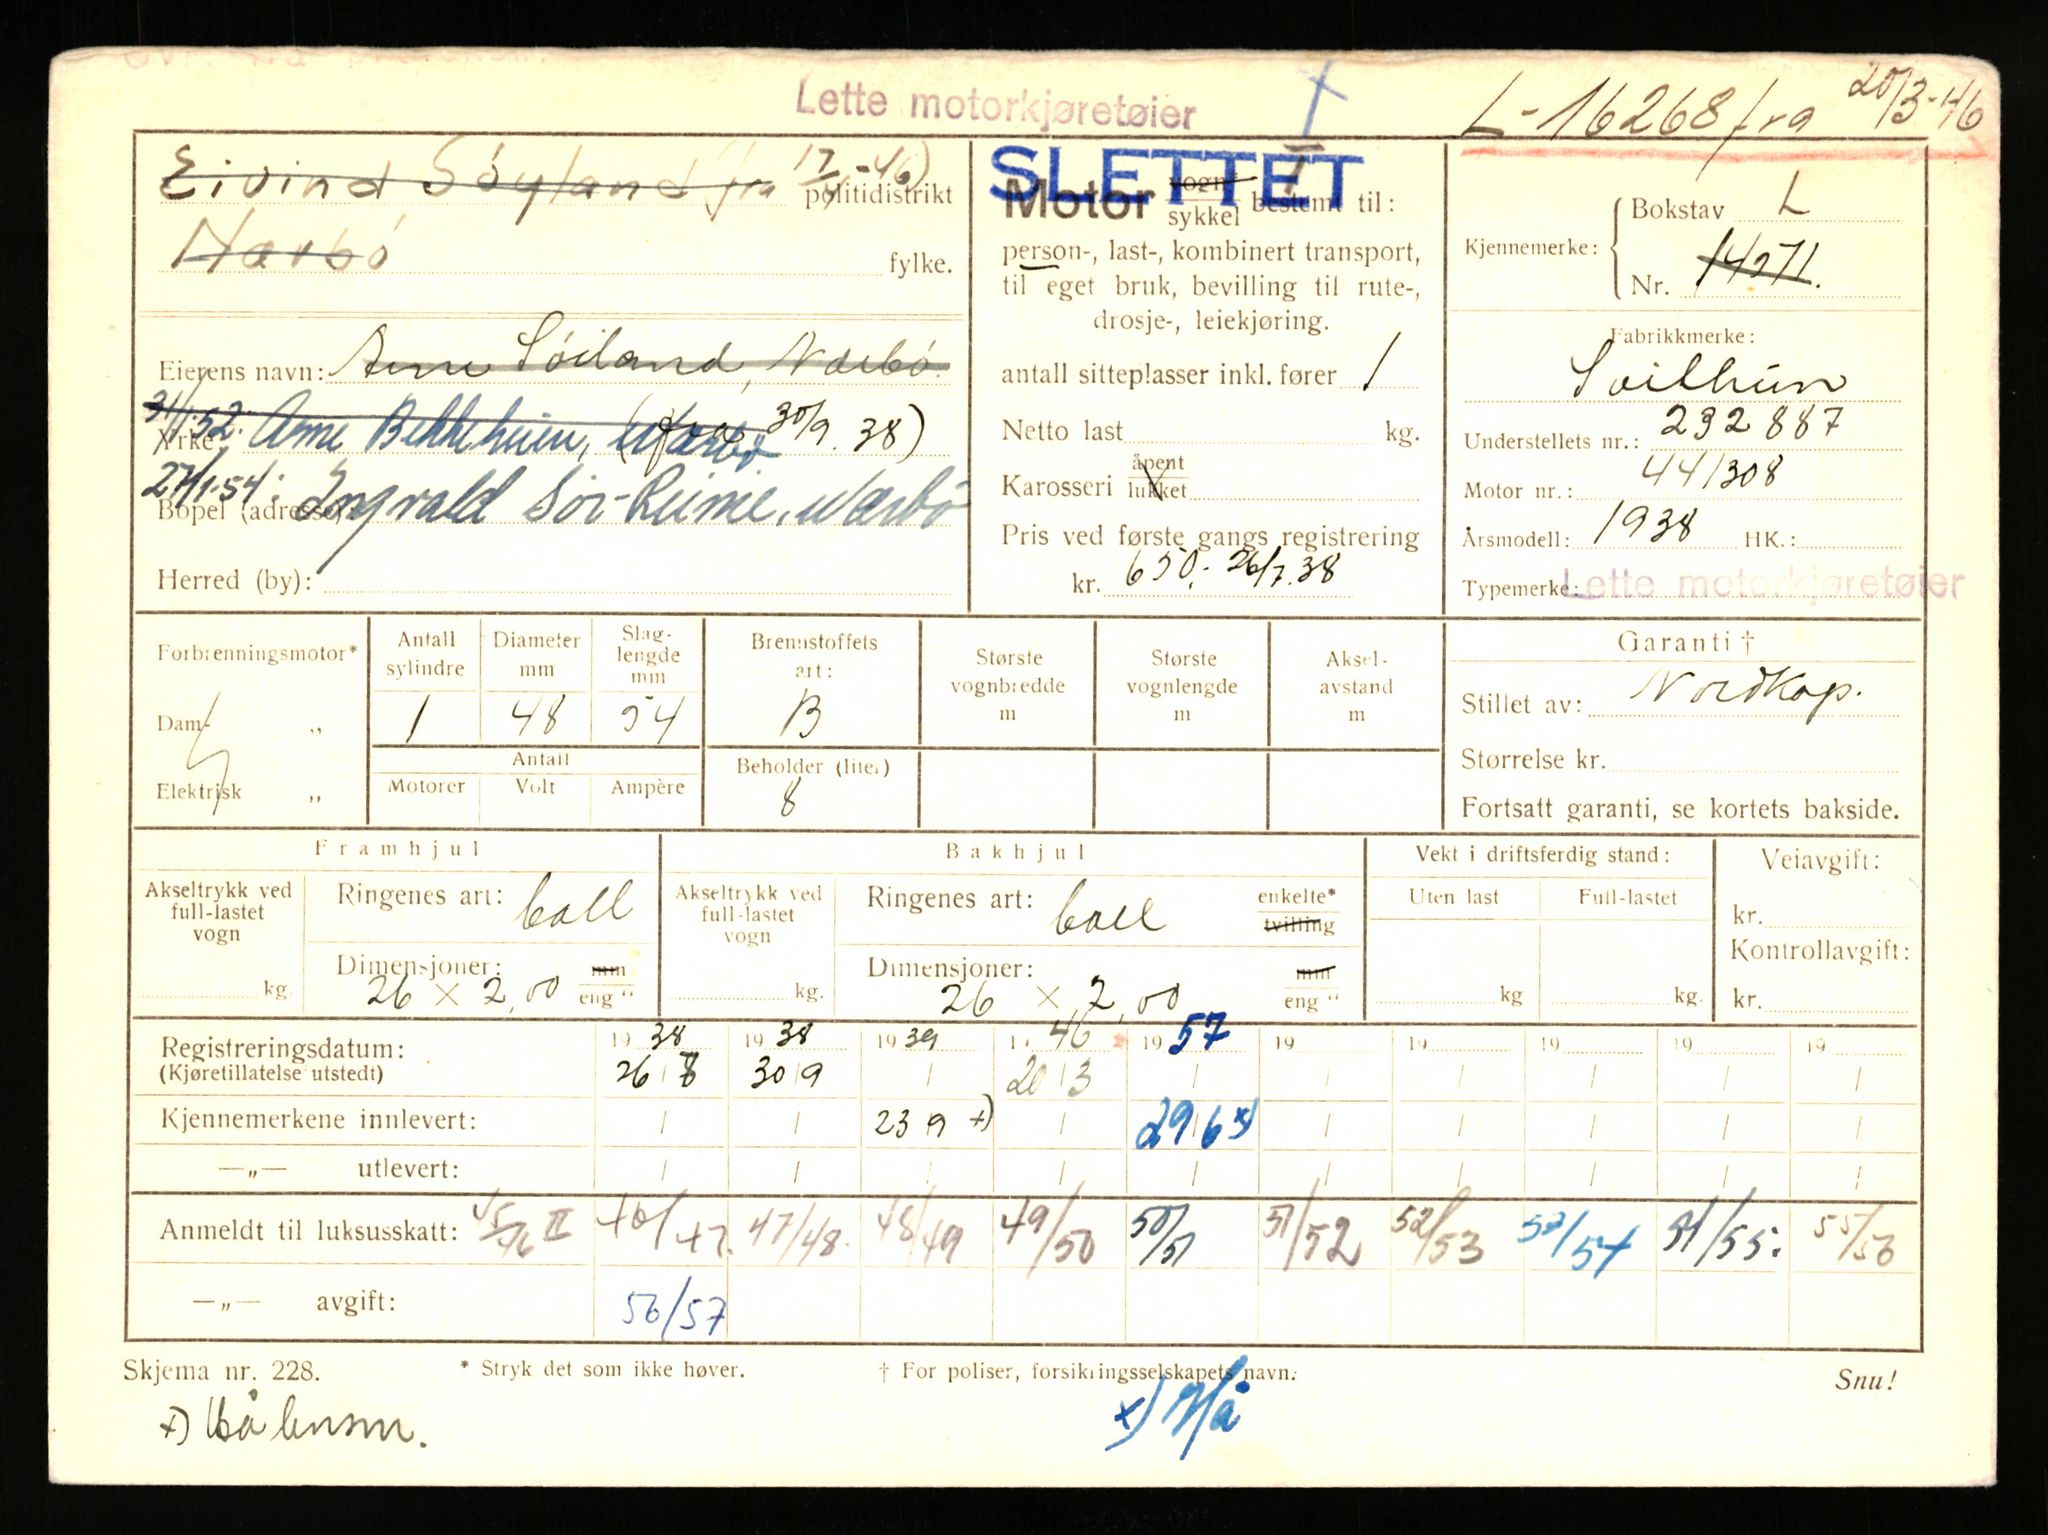 Lette motorkjøretøier
L-16268 fra 20/3-46
Eivind Söyland fra 17/ -46)
politidistrikt
Nærbö
fylke.
Eierens navn: Arne Söiland, Nærbö.
31/1.52. Arne Bekkeheien, Nærbö (fra 30/9.38)
Yrke
27/1-54: Ingvald Sör-Reime, Nærbö
Bopel (adresse)
Herred (by):
SLETTET
Motor vogn sykkel bestemt til:
person-, last-, kombinert transport,
til eget bruk, bevilling til rute-,
drosje-, leiekjøring.
antall sitteplasser inkl. fører 1
Netto last kg.
Karosseri åpent lukket
Pris ved første gangs registrering
kr. 650,- 26/7.38
Kjennemerke: Bokstav L
Nr. 14271.
Fabrikkmerke:
Svithun
Understellets nr.: 232887
Motor nr.: 441308
Årsmodell: 1938 HK.:
Typemerke: Lette motorkjøretøier
Forbrenningsmotor*
Damp „
Elektrisk „
Antall sylindre
1
Diameter mm
48
Slag-lengde mm
54
Antall
Motorer Volt Ampère
Brennstoffets art:
B
Beholder (liter)
8
Største vognbredde m
Største vognlengde m
Aksel-avstand m
Garanti †
Stillet av: Nordkap.
Størrelse kr.
Fortsatt garanti, se kortets bakside.
Framhjul
Akseltrykk ved full-lastet vogn
kg.
Ringenes art: ball
Dimensjoner: mm
26 × 2,00 eng "
Bakhjul
Akseltrykk ved full-lastet vogn
kg.
Ringenes art: ball enkelte* tvilling
Dimensjoner: mm
26 × 2,00 eng "
Vekt i driftsferdig stand:
Uten last Full-lastet
kg kg.
Veiavgift:
kr.
Kontrollavgift:
kr.
Registreringsdatum: 19 38 19 38 19 39 1 46 19 57 19 19 19 19 19
(Kjøretillatelse utstedt) 26 8 30 9 20 3
Kjennemerkene innlevert: 23 9 x) 29 6 x)
—„— utlevert:
Anmeldt til luksusskatt: 45/46 II 46/47. 47/48. 48/49 49/50 50/51 51/52 52/53 53/54 54/55. 55/56
—„— avgift: 56/57
Skjema nr. 228. * Stryk det som ikke høver. † For poliser, forsikringsselskapets navn. Snu!
x) Hå lensm. x) Hå